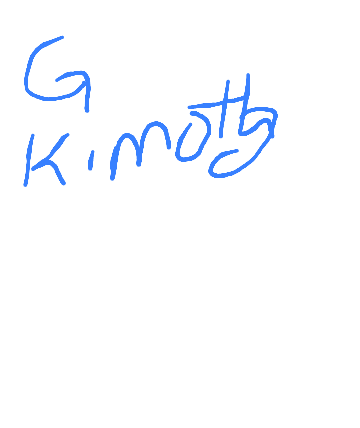 G
Kimothy